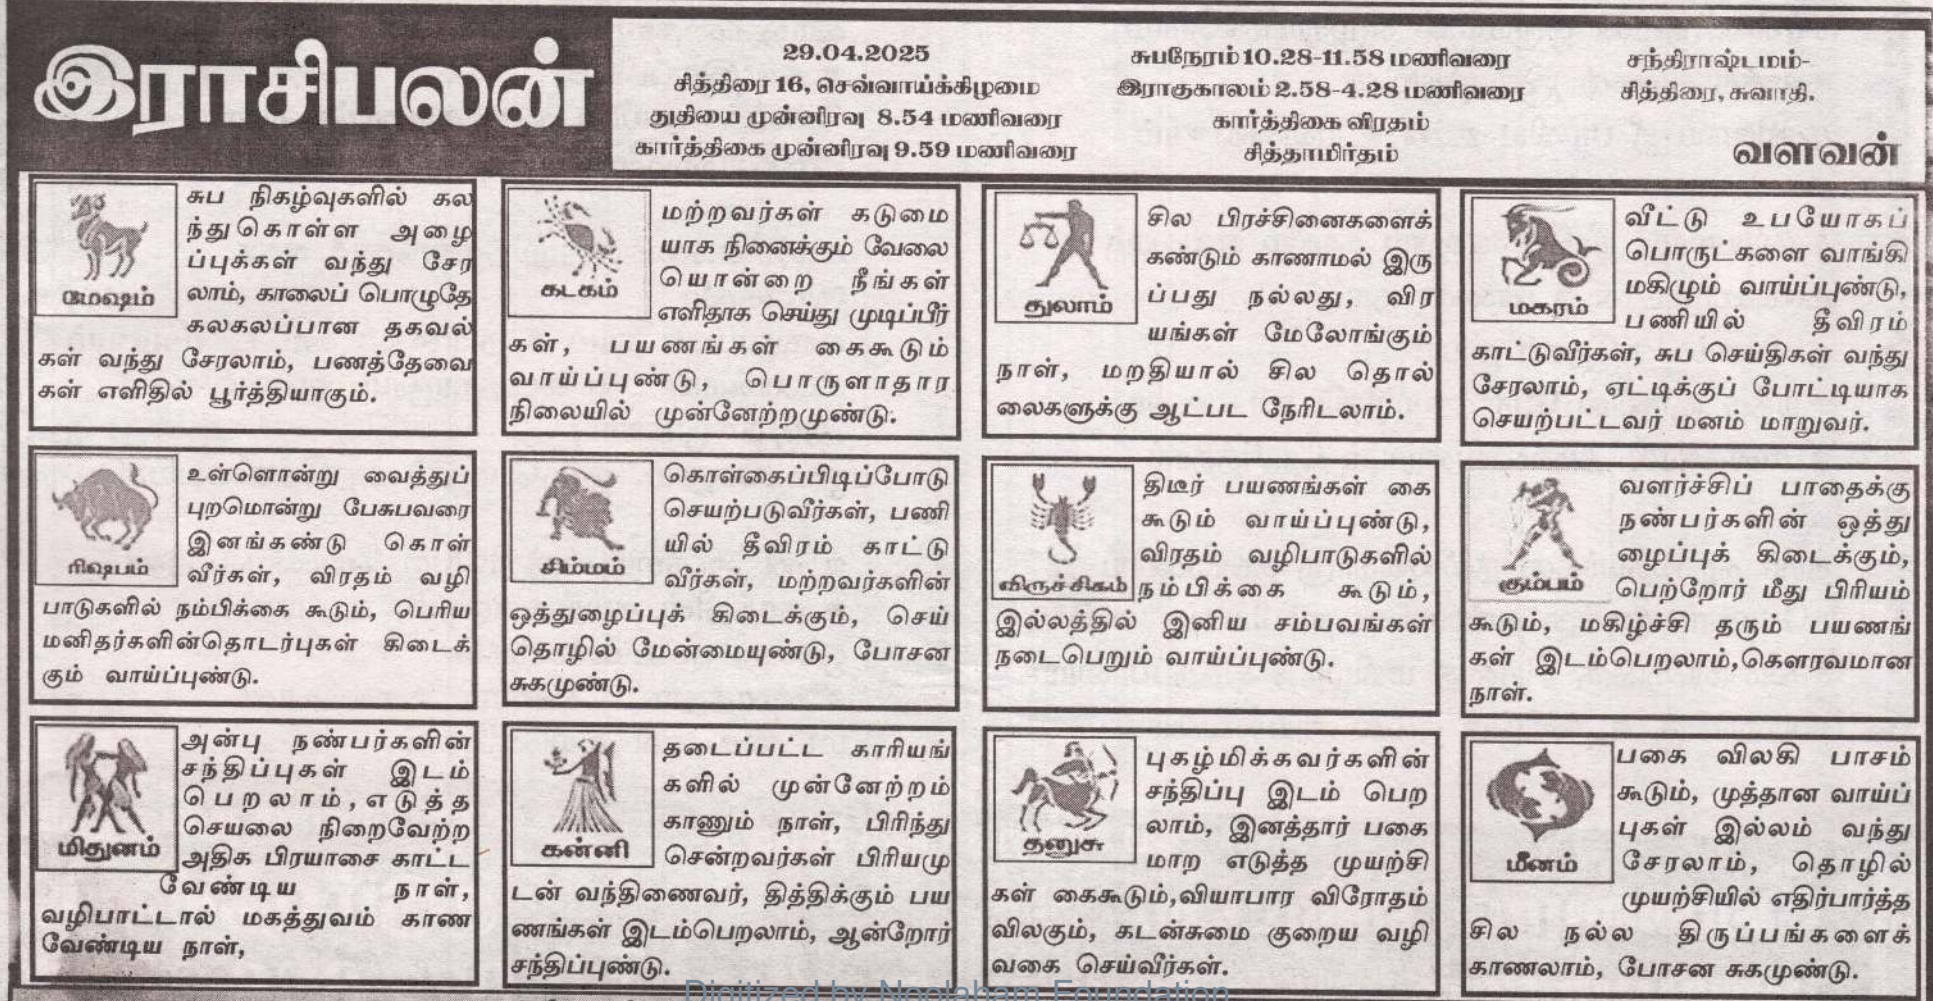 இராசிபலன்
29.04.2025
சித்திரை 16, செவ்வாய்க்கிழமை
துதியை முன்னிரவு 8.54 மணிவரை
கார்த்திகை முன்னிரவு 9.59 மணிவரை
சுபநேரம் 10.28-11.58 மணிவரை
இராகுகாலம் 2.58-4.28 மணிவரை
கார்த்திகை விரதம்
சித்தாமிர்தம்
சந்திராஷ்டமம்-
சித்திரை, சுவாதி.
வளவன்
மேஷம்
சுப நிகழ்வுகளில் கல
ந்துகொள்ள அழை
ப்புக்கள் வந்து சேர
லாம், காலைப் பொழுதே
கலகலப்பான தகவல்
கள் வந்து சேரலாம், பணத்தேவை
கள் எளிதில் பூர்த்தியாகும்.
ரிஷபம்
உள்ளொன்று வைத்துப்
புறமொன்று பேசுபவரை
இனங்கண்டு கொள்
வீர்கள், விரதம் வழி
பாடுகளில் நம்பிக்கை கூடும், பெரிய
மனிதர்களின்தொடர்புகள் கிடைக்
கும் வாய்ப்புண்டு.
மிதுனம்
அன்பு நண்பர்களின்
சந்திப்புகள் இடம்
பெறலாம்,எடுத்த
செயலை நிறைவேற்ற
அதிக பிரயாசை காட்ட
வேண்டிய நாள்,
வழிபாட்டால் மகத்துவம் காண
வேண்டிய நாள்,
கடகம்
மற்றவர்கள் கடுமை
யாக நினைக்கும் வேலை
யொன்றை நீங்கள்
எளிதாக செய்து முடிப்பீர்
கள், பயணங்கள் கைகூடும்
வாய்ப்புண்டு, பொருளாதார
நிலையில் முன்னேற்றமுண்டு.
சிம்மம்
கொள்கைப்பிடிப்போடு
செயற்படுவீர்கள், பணி
யில் தீவிரம் காட்டு
வீர்கள், மற்றவர்களின்
ஒத்துழைப்புக் கிடைக்கும், செய்
தொழில் மேன்மையுண்டு, போசன
சுகமுண்டு.
கன்னி
தடைப்பட்ட காரியங்
களில் முன்னேற்றம்
காணும் நாள், பிரிந்து
சென்றவர்கள் பிரியமு
டன் வந்திணைவர், தித்திக்கும் பய
ணங்கள் இடம்பெறலாம், ஆன்றோர்
சந்திப்புண்டு.
துலாம்
சில பிரச்சினைகளைக்
கண்டும் காணாமல் இரு
ப்பது நல்லது, விர
யங்கள் மேலோங்கும்
நாள், மறதியால் சில தொல்
லைகளுக்கு ஆட்பட நேரிடலாம்.
விருச்சிகம்
திடீர் பயணங்கள் கை
கூடும் வாய்ப்புண்டு,
விரதம் வழிபாடுகளில்
நம்பிக்கை கூடும்,
இல்லத்தில் இனிய சம்பவங்கள்
நடைபெறும் வாய்ப்புண்டு.
தனுசு
புகழ்மிக்கவர்களின்
சந்திப்பு இடம் பெற
லாம், இனத்தார் பகை
மாற எடுத்த முயற்சி
கள் கைகூடும்,வியாபார விரோதம்
விலகும், கடன்சுமை குறைய வழி
வகை செய்வீர்கள்.
மகரம்
வீட்டு உபயோகப்
பொருட்களை வாங்கி
மகிழும் வாய்ப்புண்டு,
பணியில் தீவிரம்
காட்டுவீர்கள், சுப செய்திகள் வந்து
சேரலாம், ஏட்டிக்குப் போட்டியாக
செயற்பட்டவர் மனம் மாறுவர்.
கும்பம்
வளர்ச்சிப் பாதைக்கு
நண்பர்களின் ஒத்து
ழைப்புக் கிடைக்கும்,
பெற்றோர் மீது பிரியம்
கூடும், மகிழ்ச்சி தரும் பயணங்
கள் இடம்பெறலாம்,கௌரவமான
நாள்.
மீனம்
பகை விலகி பாசம்
கூடும், முத்தான வாய்ப்
புகள் இல்லம் வந்து
சேரலாம், தொழில்
முயற்சியில் எதிர்பார்த்த
சில நல்ல திருப்பங்களைக்
காணலாம், போசன சுகமுண்டு.
Digitized by Noolaham Foundation